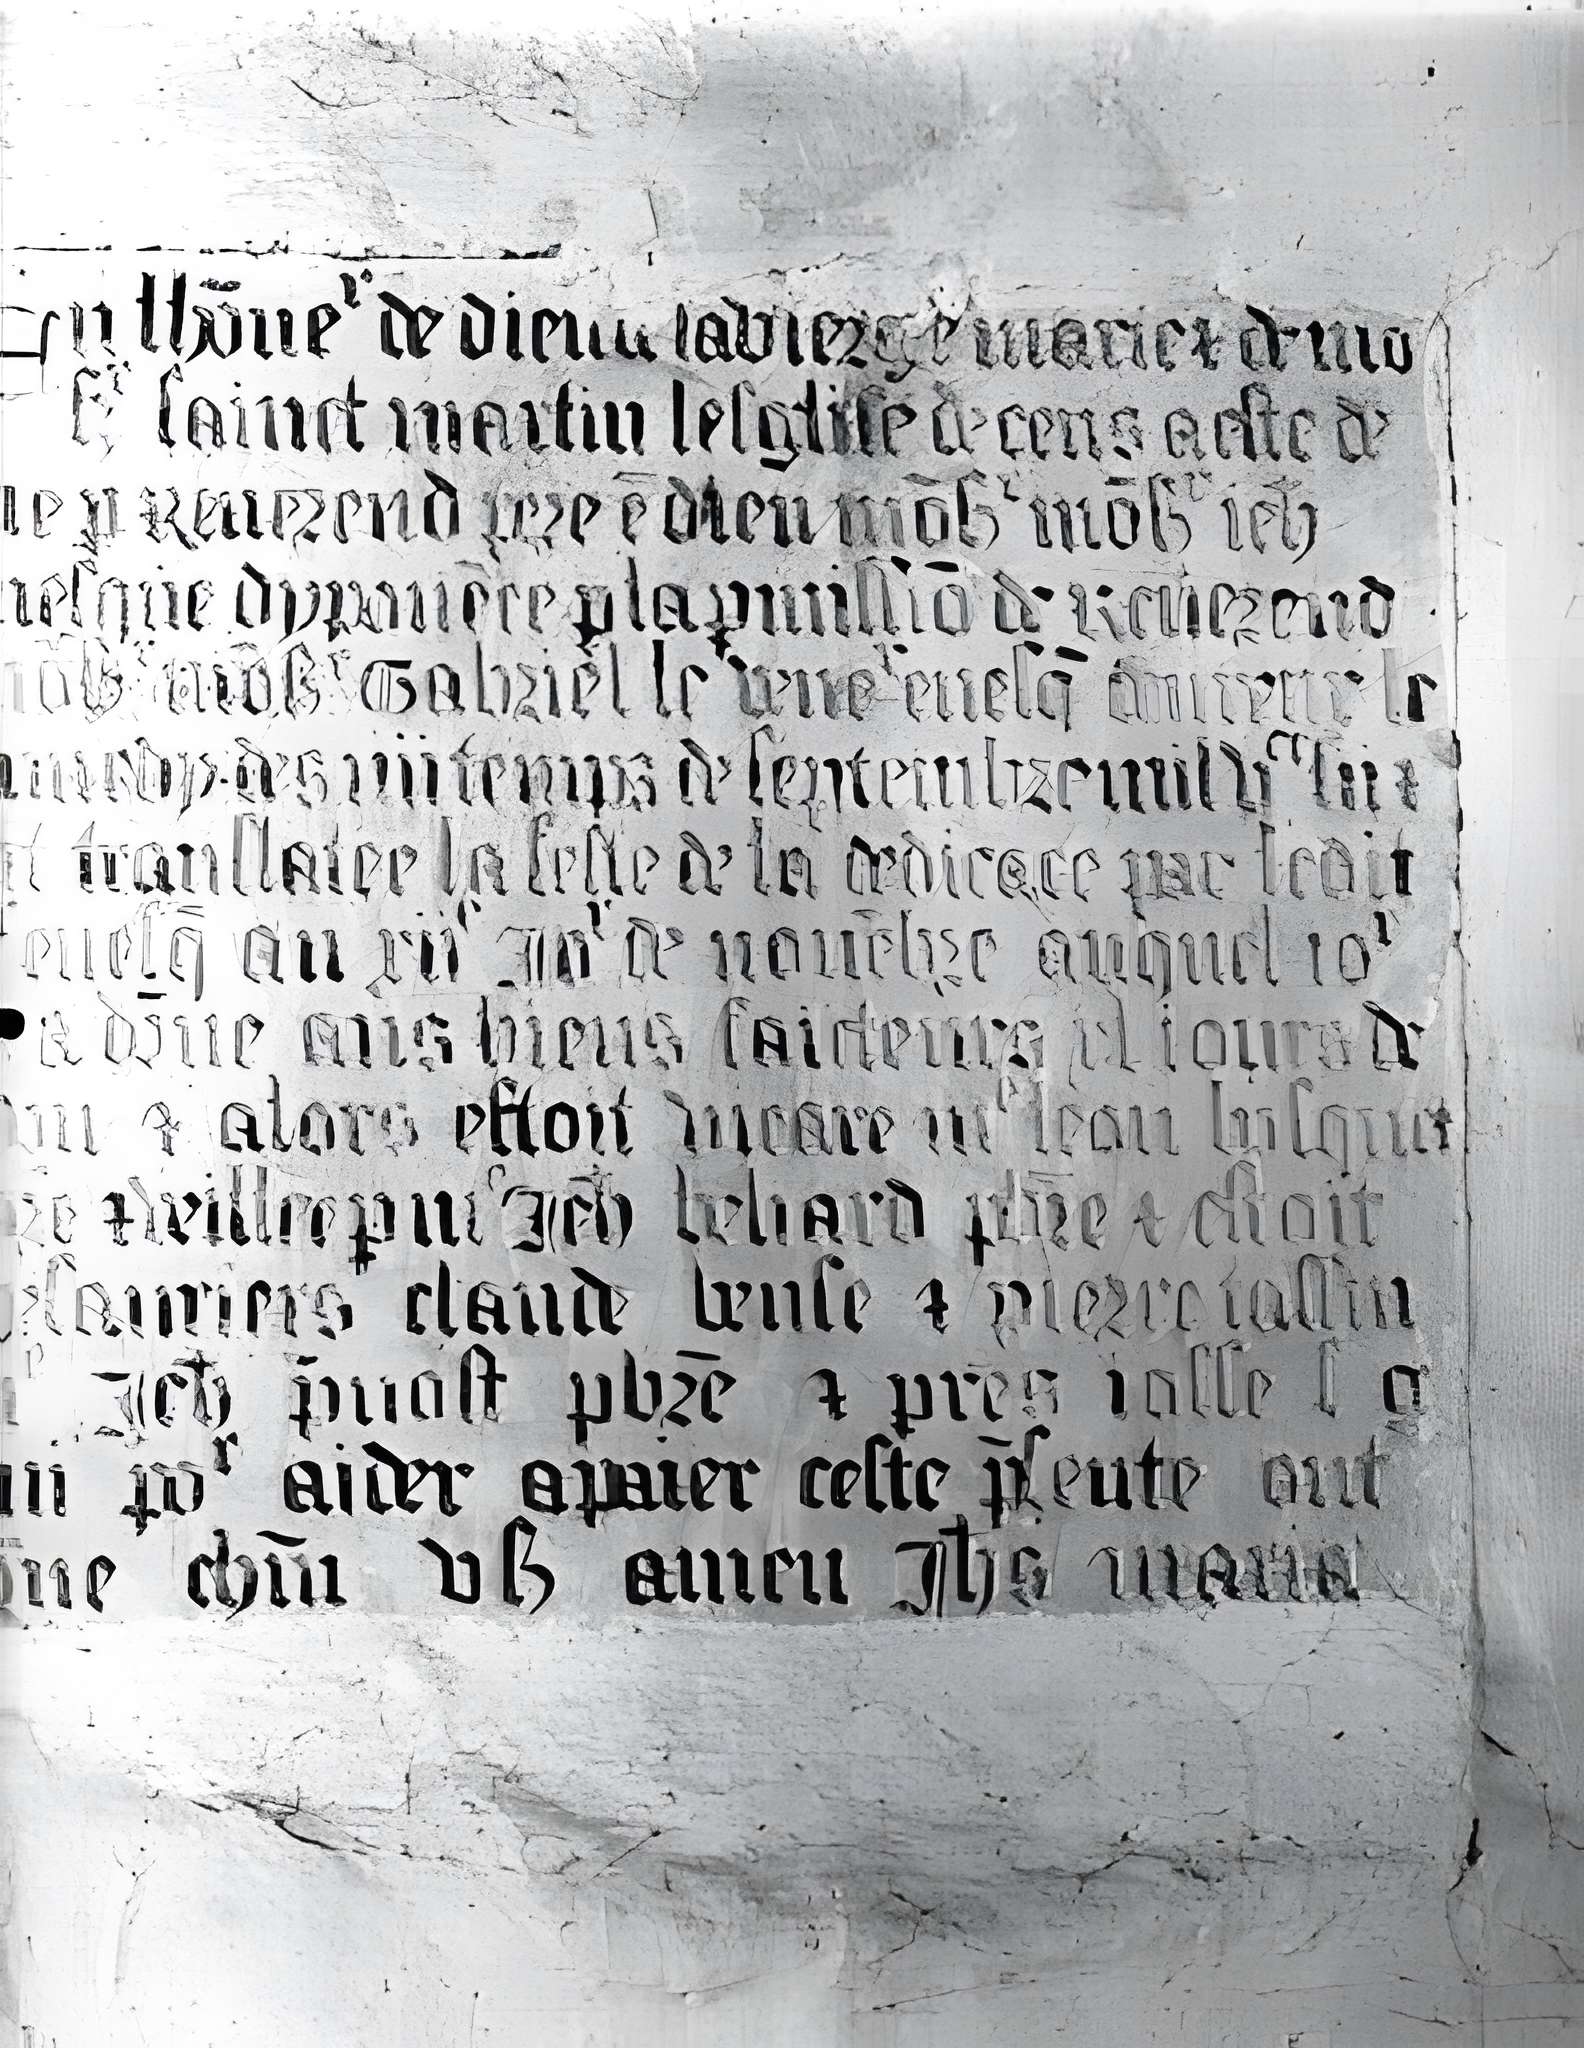 En lhōneʳ de dieu ladvierge marie & de mo
sʳ sainct martin lesglise de ceus a este de
p Reuerend pere ē dieu mōsʳ mōsʳ ieh
uesque dypponēce p la pmissiō de Reuerend
mōsʳ mōsʳ Gabriel le veneʳ euesq̄ le
des iiii temps de septembre mil vᶜ liii &
translatee la feste de la dedicace par ledit
euesq̄ au xiiᵉ Joʳ de nouēbre auquel ioʳ
dōne aus biens faicteurs xl iours de
& alors estoit vicare mᵉ iean
p mᵉ Jeh behard pbr̄e & estoit
claude veuse & pierre iassin
Jeh p̄uost pbrē & prēs iosse
poʳ aider a paier ceste p̄sente ont
chm̄ vs amen Jhs maria